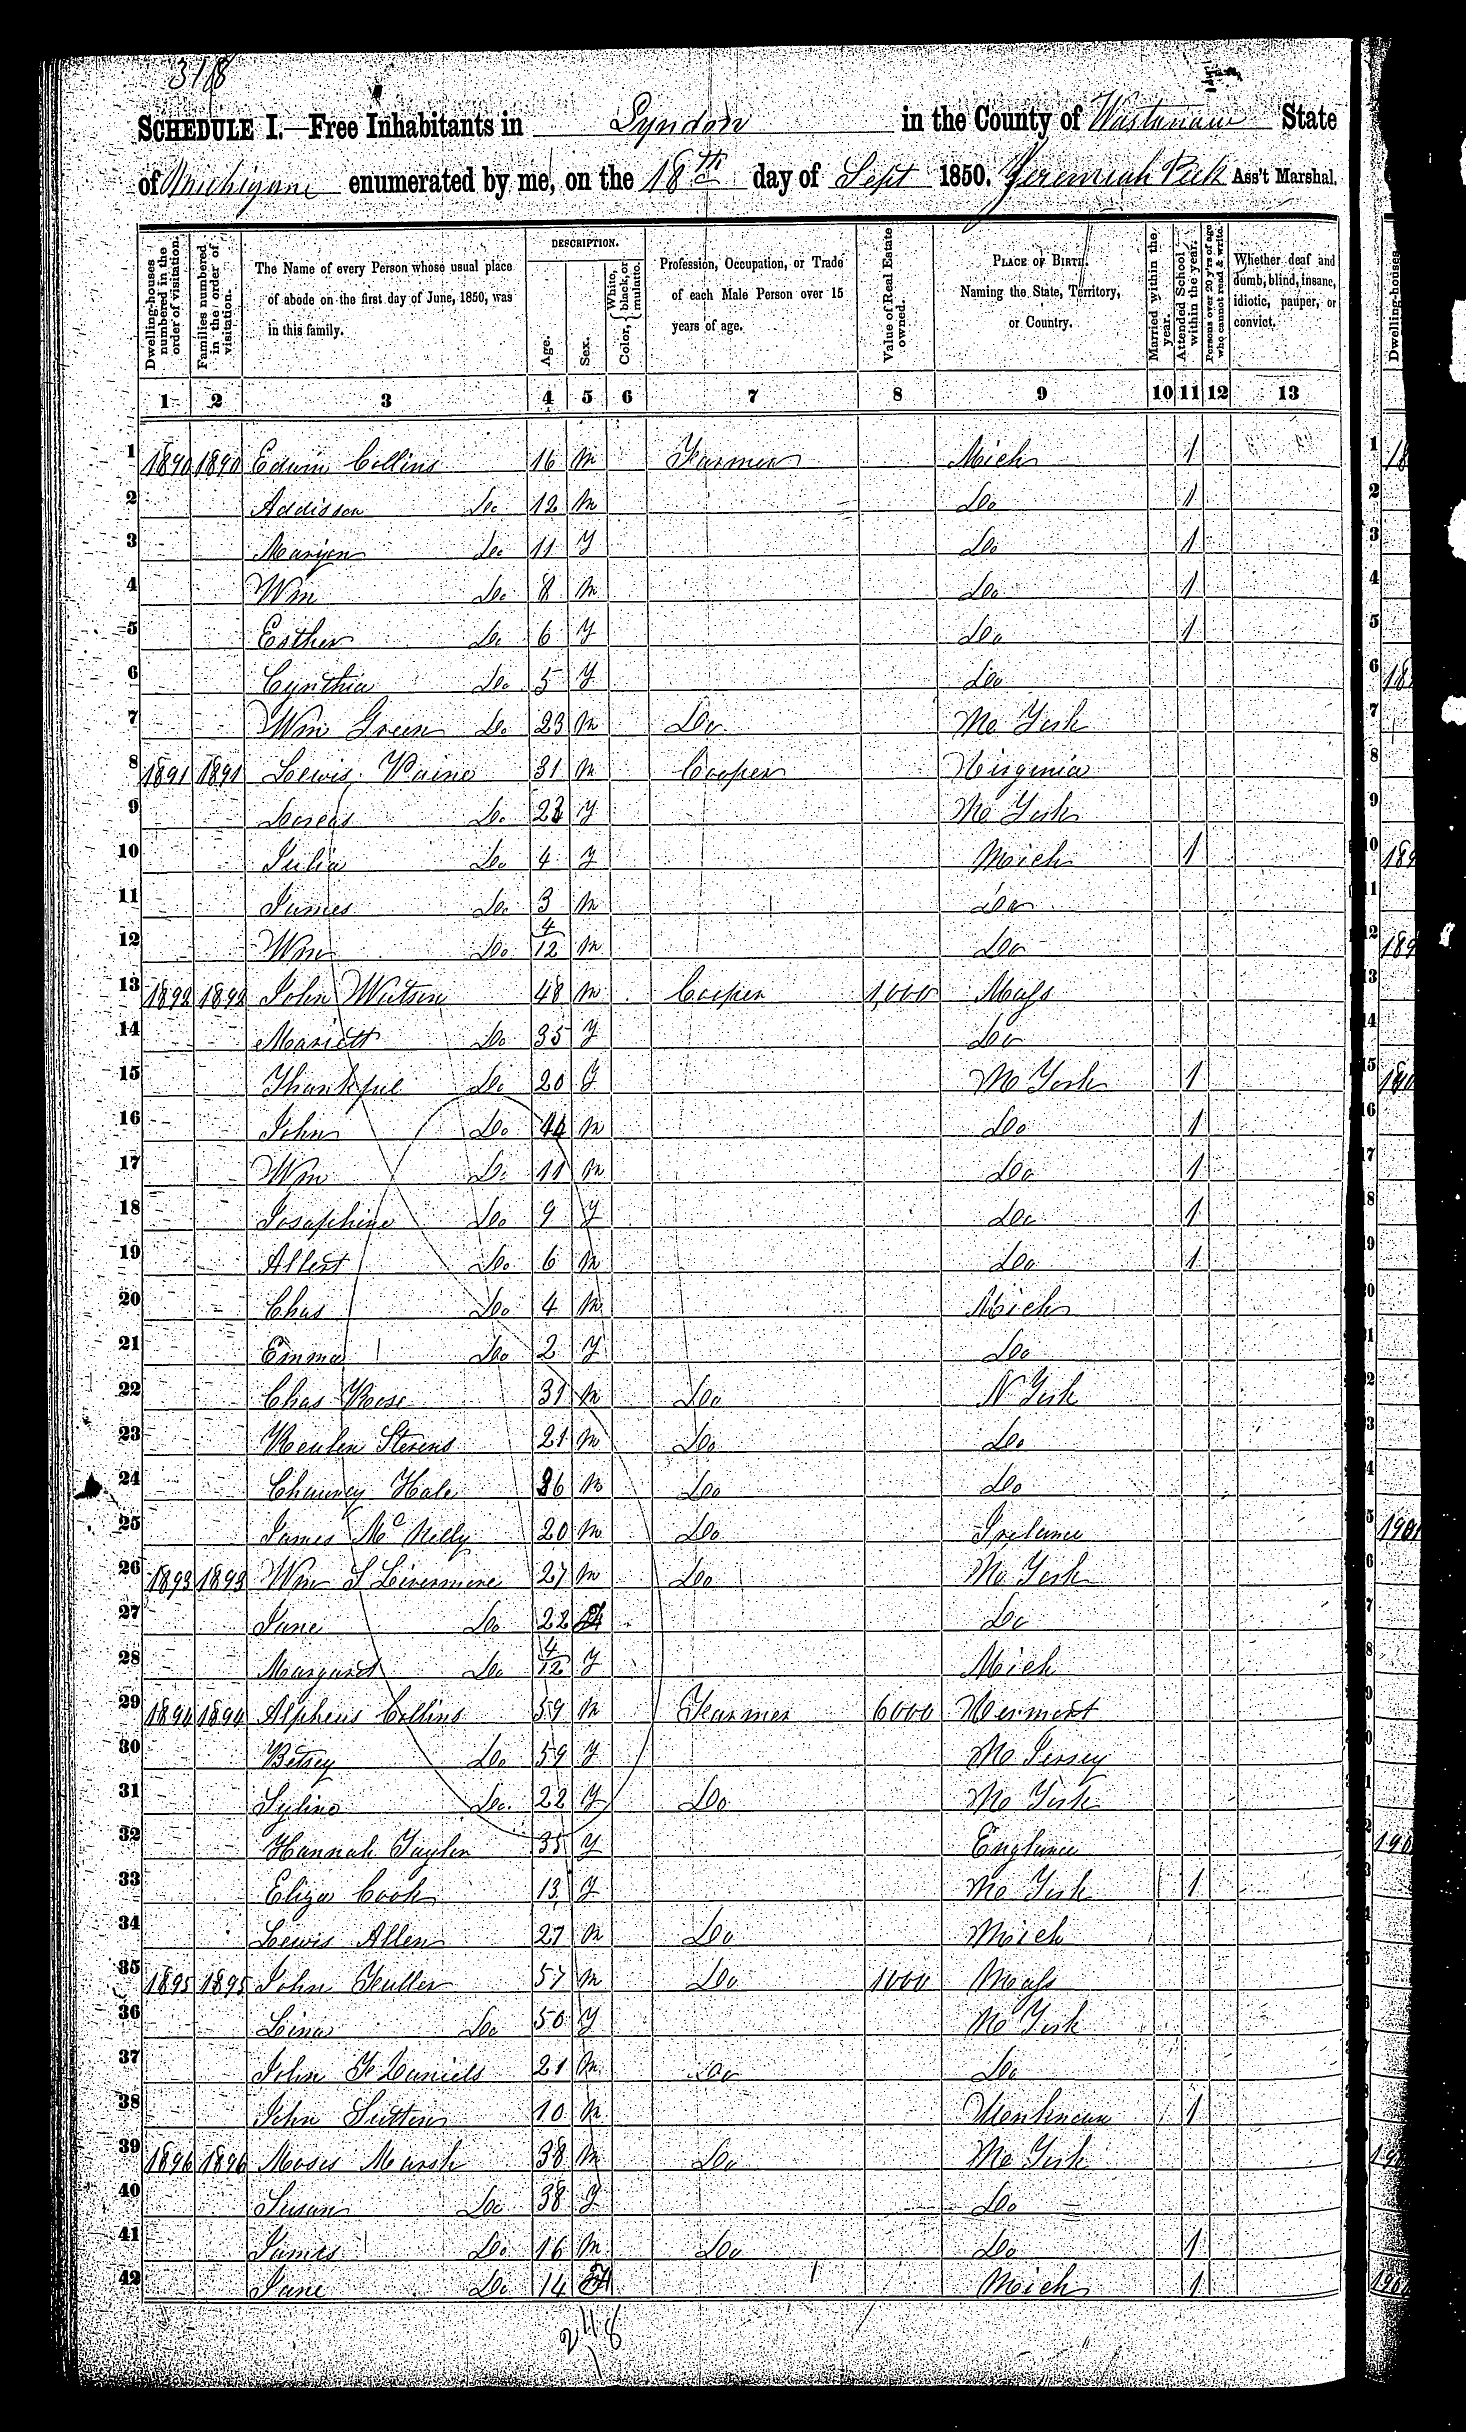 318
SCHEDULE I.—Free Inhabitants in Lyndon in the County of Wastenaw State
of Michigan enumerated by me, on the 18th day of Sept 1850. Jeremiah Peek Ass't Marshal.
Dwelling-houses numbered in the order of visitation.
Families numbered in the order of visitation.
The Name of every Person whose usual place of abode on the first day of June, 1850, was in this family.
DESCRIPTION.
Age.
Sex.
Color, { White, black, or mulatto.
Profession, Occupation, or Trade of each Male Person over 15 years of age.
Value of Real Estate owned.
PLACE OF BIRTH. Naming the State, Territory, or Country.
Married within the year.
Attended School within the year.
Persons over 20 y'rs of age who cannot read & write.
Whether deaf and dumb, blind, insane, idiotic, pauper, or convict.
1 2 3 4 5 6 7 8 9 10 11 12 13
1 1890 1890 Edwin Collins 16 M Farmer Mich 1
2 Addison Do 12 M Do 1
3 Maryen Do 11 F Do 1
4 Wm Do 8 M Do 1
5 Esther Do 6 F Do 1
6 Cynthia Do 5 F Do
7 Wm Green Do 23 M Do Ne York
8 1891 1891 Lewis Paine 31 M Cooper Virginia
9 Dorcas Do F Ne York
10 Julia Do 4 F Mich 1
11 James Do 3 M Do
12 Wm Do 4/12 M Do
13 1892 1892 John Watson 48 M Cooper 1,000 Mass
14 Mariett Do 35 F Do
15 Thankful Do 20 F Ne York 1
16 John Do M Do 1
17 Wm Do 11 M Do 1
18 Josaphine Do 9 F Do 1
19 Albert Do 6 M Do 1
20 Chas Do 4 M Mich
21 Emma Do 2 F Do
22 Chas Rose 31 M Do N York
23 Reuben Stevens 21 M Do Do
24 Chauncy Hale 26 M Do Do
25 James McNelly 20 M Do Ireland
26 1893 1893 Wm S Livermore 27 M Do Ne York
27 Jane Do 22 F Do
28 Margaret Do 4/12 F Mich
29 1894 1894 Alpheus Collins 59 M Farmer 6000 Vermont
30 Betsey Do 59 F Ne Jersey
31 Sylina Do 22 F Do Ne York
32 Hannah Taylor 35 F England
33 Eliza Cook 13 F Ne York 1
34 Lewis Allen 27 M Do Mich
35 1895 1895 John Fuller 57 M Do 1000 Mass
36 Lina Do 50 F Ne York
37 John F Daniels 21 M Do Do
38 John Sutton 10 M Unknown 1
39 1896 1896 Moses Marsh 38 M Do Ne York
40 Susan Do 38 F Do
41 James Do 16 M Do Do 1
42 Jane Do 14 F Mich 1